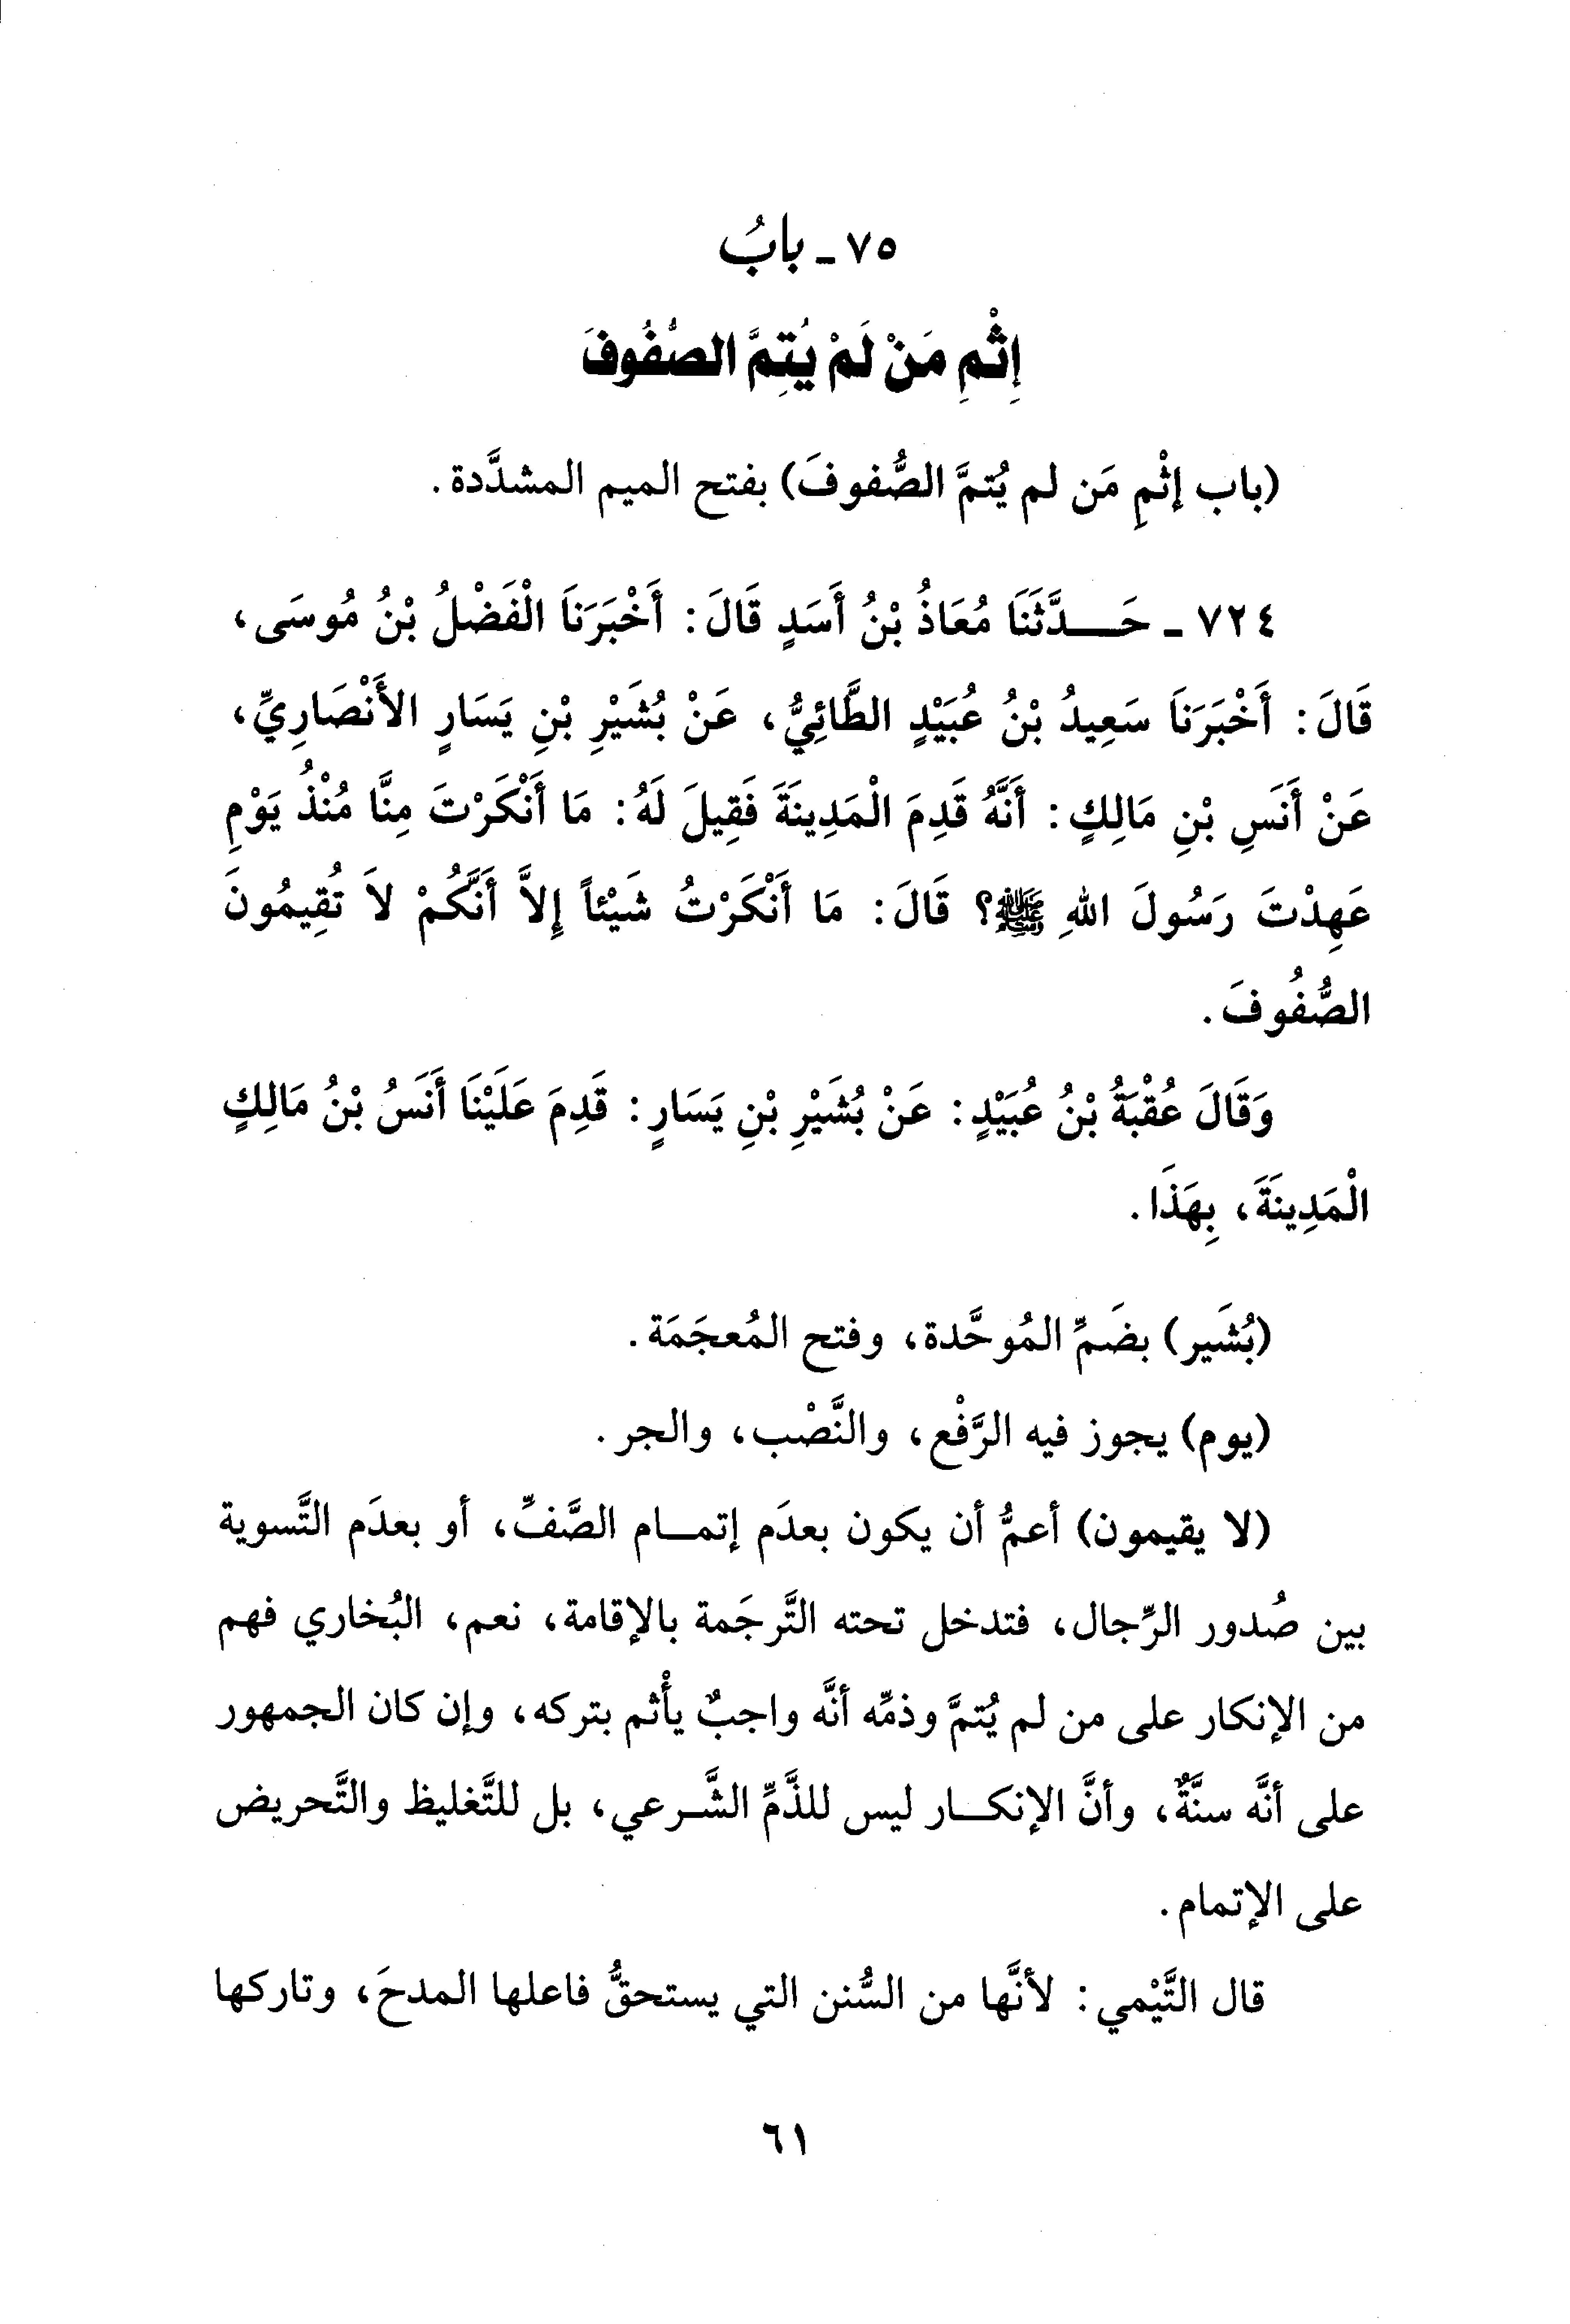 ٧٥ - بابُ
إِثْمِ مَنْ لَمْ يُتِمَّ الصُّفُوفَ
(باب إثْمِ مَن لم يُتمَّ الصُّفوفَ) بفتح الميم المشدَّدة.
٧٢٤ - حَـــدَّثَنَا مُعَاذُ بْنُ أَسَدٍ قَالَ: أَخْبَرَنَا الْفَضْلُ بْنُ مُوسَى،
قَالَ: أَخْبَرَنَا سَعِيدُ بْنُ عُبَيْدٍ الطَّائِيُّ، عَنْ بُشَيْرِ بْنِ يَسَارٍ الأَنْصَارِيِّ،
عَنْ أَنَسِ بْنِ مَالِكٍ: أَنَّهُ قَدِمَ الْمَدِينَةَ فَقِيلَ لَهُ: مَا أَنْكَرْتَ مِنَّا مُنْذُ يَوْمِ
عَهِدْتَ رَسُولَ اللهِ ﷺ؟ قَالَ: مَا أَنْكَرْتُ شَيْئاً إِلاَّ أَنَّكُمْ لاَ تُقِيمُونَ
الصُّفُوفَ.
وَقَالَ عُقْبَةُ بْنُ عُبَيْدٍ: عَنْ بُشَيْرِ بْنِ يَسَارٍ: قَدِمَ عَلَيْنَا أَنَسُ بْنُ مَالِكٍ
الْمَدِينَةَ، بِهَذَا.
(بُشَير) بضَمِّ المُوحَّدة، وفتح المُعجَمَة.
(يوم) يجوز فيه الرَّفْع، والنَّصْب، والجر.
(لا يقيمون) أعمُّ أن يكون بعدَم إتمــام الصَّفِّ، أو بعدَم التَّسوية
بين صُدور الرِّجال، فتدخل تحته التَّرجَمة بالإقامة، نعم، البُخاري فهم
من الإنكار على من لم يُتمَّ وذمِّه أنَّه واجبٌ يأْثم بتركه، وإن كان الجمهور
على أنَّه سنَّةٌ، وأنَّ الإنكــار ليس للذَّمِّ الشَّـرعي، بل للتَّغليظ والتَّحريض
على الإتمام.
قال التَّيْمي: لأنَّها من السُّنن التي يستحقُّ فاعلها المدحَ، وتاركها
٦١